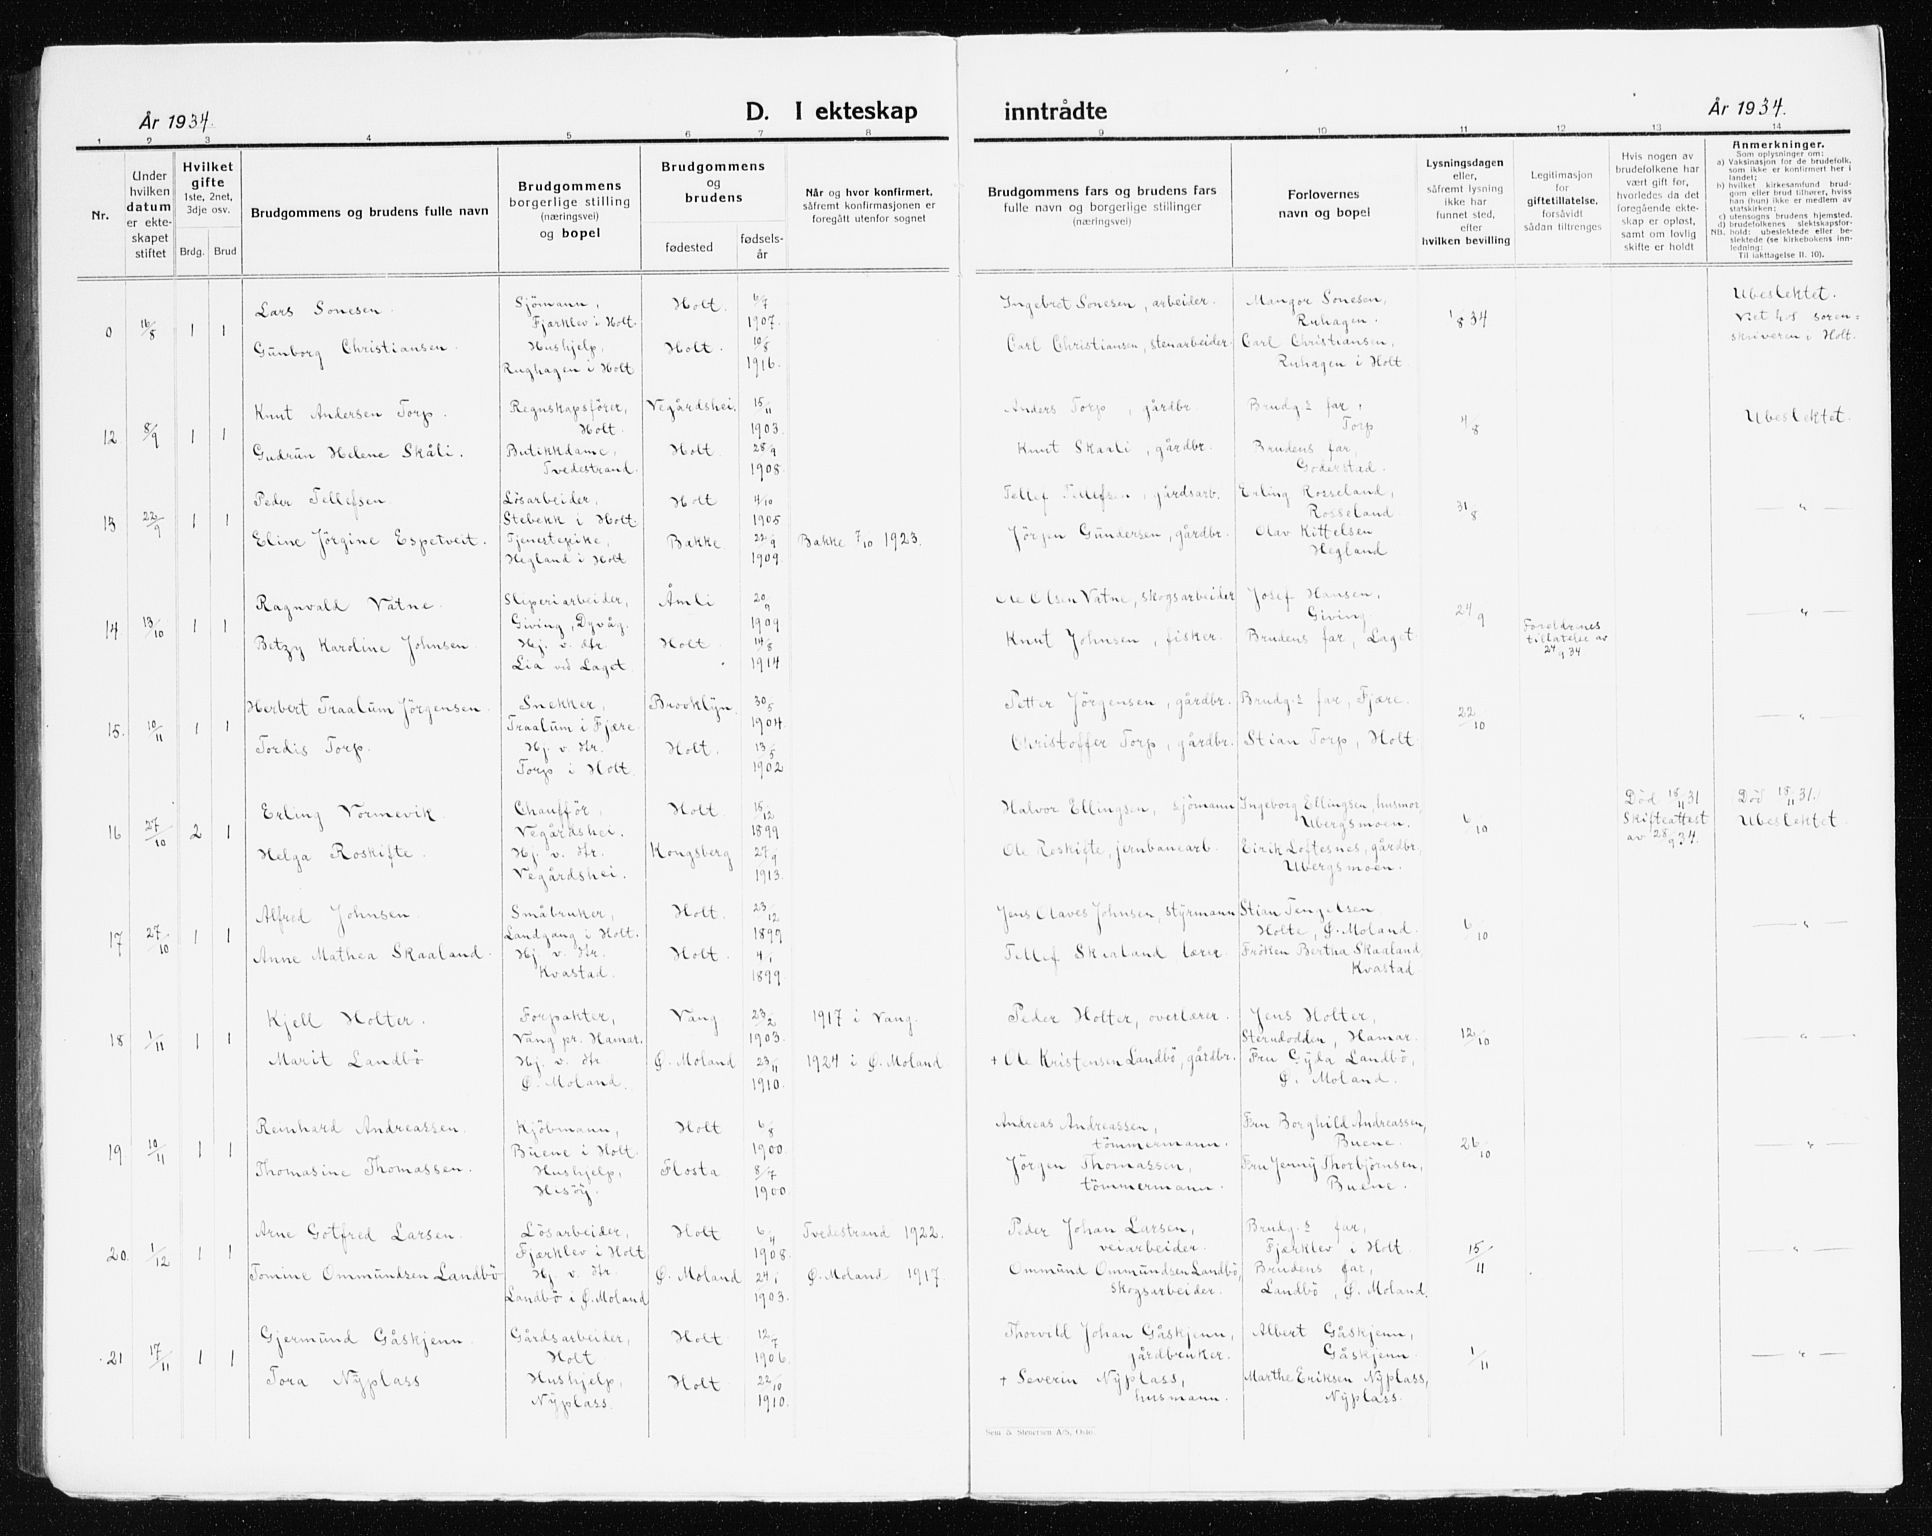 År 1934.
D. I ekteskap
inntrådte
År 1934.
1 2 3 4 5 6 7 8 9 10 11 12 13 14
Nr.
Under hvilken datum er ekteskapet stiftet
Hvilket gifte
1ste, 2net, 3dje osv.
Brdg. Brud
Brudgommens og brudens fulle navn
Brudgommens borgerlige stilling (næringsvei) og bopel
Brudgommens og brudens
fødested
fødsels-år
Når og hvor konfirmert, såfremt konfirmasjonen er foregått utenfor sognet
Brudgommens fars og brudens fars fulle navn og borgerlige stillinger (næringsvei)
Forlovernes navn og bopel
Lysningsdagen eller, såfremt lysning ikke har funnet sted, efter hvilken bevilling
Legitimasjon for giftetillatelse, forsåvidt sådan tiltrenges
Hvis nogen av brudefolkene har vært gift før, hvorledes da det foregående ekteskap er opløst, samt om lovlig skifte er holdt
Anmerkninger.
Som oplysninger om:
a) Vaksinasjon for de brudefolk, som ikke er konfirmert her i landet;
b) hvilket kirkesamfund brudgom eller brud tilhører, hvis han (hun) ikke er medlem av statskirken;
c) utensogns brudens hjemsted.
d) brudefolkenes slektskapsforhold: ubeslektede eller beslektede (se kirkebokens innledning:
NB.
Til iakttagelse II. 10).
0 16/8 1 1 Lars Sonesen. Sjømann, Fjærklev i Holt. Holt. 6/7 1907. Ingebret Sonesen, arbeider. Mangor Sonesen, Ruhagen. 1/8 34 Ubeslektet. Viet hos sorenskriveren i Holt.
Gunborg Christiansen. Hushjelp, Rughagen i Holt Holt. 10/8 1916. Carl Christiansen, stenarbeider. Carl Christiansen, Ruhagen i Holt.
12 8/9 1 1 Knut Andersen Torp. Regnskapsfører, Holt. Vegårdshei. 15/11 1903. Anders Torp, gårdbr. Brudg.s far, Torp 4/8 Ubeslektet.
Gudrun Helene Skåli. Butikkdame, Tvedestrand. Holt. 28/9 1908. Knut Skaali, gårdbr. Brudens far, Goderstad.
13 22/9 1 1 Peder Tellefsen Løsarbeider, Stebekk i Holt. Holt 4/10 1905 Tellef Tellefsen, gårdsarb. Erling Rosseland, Rosseland. 31/8 — " —
Eline Jørgine Espetveit. Tjenestepike, Hegland i Holt Bakke. 22/9 1909 Bakke 7/10 1923. Jørgen Gundersen, gårdbr. Olav Kittelsen Hegland
14 13/10 1 1 Ragnvald Vatne. Sliperiarbeider, Giving, Dyvåg. Åmli 20/9 1909 Ole Olsen Vatne, skogsarbeider Josef Hansen, Giving. 24/9 Foreldrenes tillatelse av 24/9 34 — " —
Betzy Karoline Johnsen. Hj. v. str. Lia ved Laget. Holt. 14/8 1914 Knut Johnsen, fisker. Brudens far, Laget.
15. 10/11 1 1 Herbert Traalum Jørgensen. Snekker, Traalum i Fjære. Brooklyn. 30/5 1904. Petter Jørgensen, gårdbr. Brudg.s far, Fjære. 22/10 — " —
Tordis Torp. Hj. v. str. Torp i Holt. Holt. 13/5 1902 Christoffer Torp, gårdbr. Stian Torp, Holt.
16 27/10 2 1 Erling Vormevik. Chauffør, Vegårdshei. Holt. 15/12 1899 Halvor Ellingsen, sjømann Ingeborg Ellingsen, husmor, Ubergsmoen. 6/10 Død 18/11 31 Skifteattest av 28/9 34. Død 18/11 31. Ubeslektet.
Helga Roskifte. Hj. v. str. Vegårdshei. Kongsberg 27/9 1913. Ole Roskifte, jernbanearb. Eirik Loftesnes, gårdbr, Ubergsmoen.
17 27/10 1 1 Alfred Johnsen. Småbruker, Landgang i Holt. Holt. 23/12 1899 Jens Olaves Johnsen, styrmann Stian Tengelsen, Holte, Ø. Moland. 6/10 — " —
Anne Mathea Skaaland. Hj. v. str. Kvastad. Holt. 4/1 1899. Tellef Skaaland lærer. Frøken Bertha Skaaland, Kvastad
18 1/11 1 1 Kjell Holter. Forpakter, Vang pr. Hamar. Vang 23/2 1903. 1917 i Vang. Peder Holter, overlærer. Jens Holter, Hamar. 12/10 — " —
Marit Landbø Hj. v. str Ø. Moland. Ø. Moland 23/11 1910. 1924 i Ø. Moland + Ole Kristensen Landbø, gårdbr. Fru Gyda Landbø, Ø. Moland.
19. 10/11 1 1 Reinhard Andreassen. Kjøbmann, Buene i Holt. Holt 6/8 1900. Andreas Andreassen, tømmermann. Fru Borghild Andreassen, Buene. 26/10 — " —
Thomasine Thomassen. Hushjelp, Hisøy. Flosta 8/7 1900 Jørgen Thomassen, tømmermann. Fru Jenny Thorbjørnsen, Buene.
20. 1/12 1 1 Arne Gotfred Larsen. Løsarbeider, Fjærklev i Holt Holt 6/4 1908. Tvedestrand 1922. Peder Johan Larsen, veiarbeider. Brudg.s far, Fjærklev i Holt. 15/11 — " —
Tomine Ommundsen Landbø Hj. v. str. Landbø i Ø. Moland Ø. Moland 24/1 1903. Ø. Moland 1917. Ommund Ommundsen Landbø, skogsarbeider. Brudens far, Landbø, Ø. Moland.
21 17/11 1 1 Gjermund Gåskjenn. Gårdsarbeider, Holt. Holt 12/7 1906. Thorvild Johan Gåskjenn, gårdbruker. Albert Gåskjenn, Gåskjenn. 1/11 — " —
Tora Nyplass Hushjelp, Nyplass. Holt 22/10 1910. + Severin Nyplass, husmann. Marthe Eriksen Nyplass, Nyplass.
Sem & Stenersen A/S, Oslo.